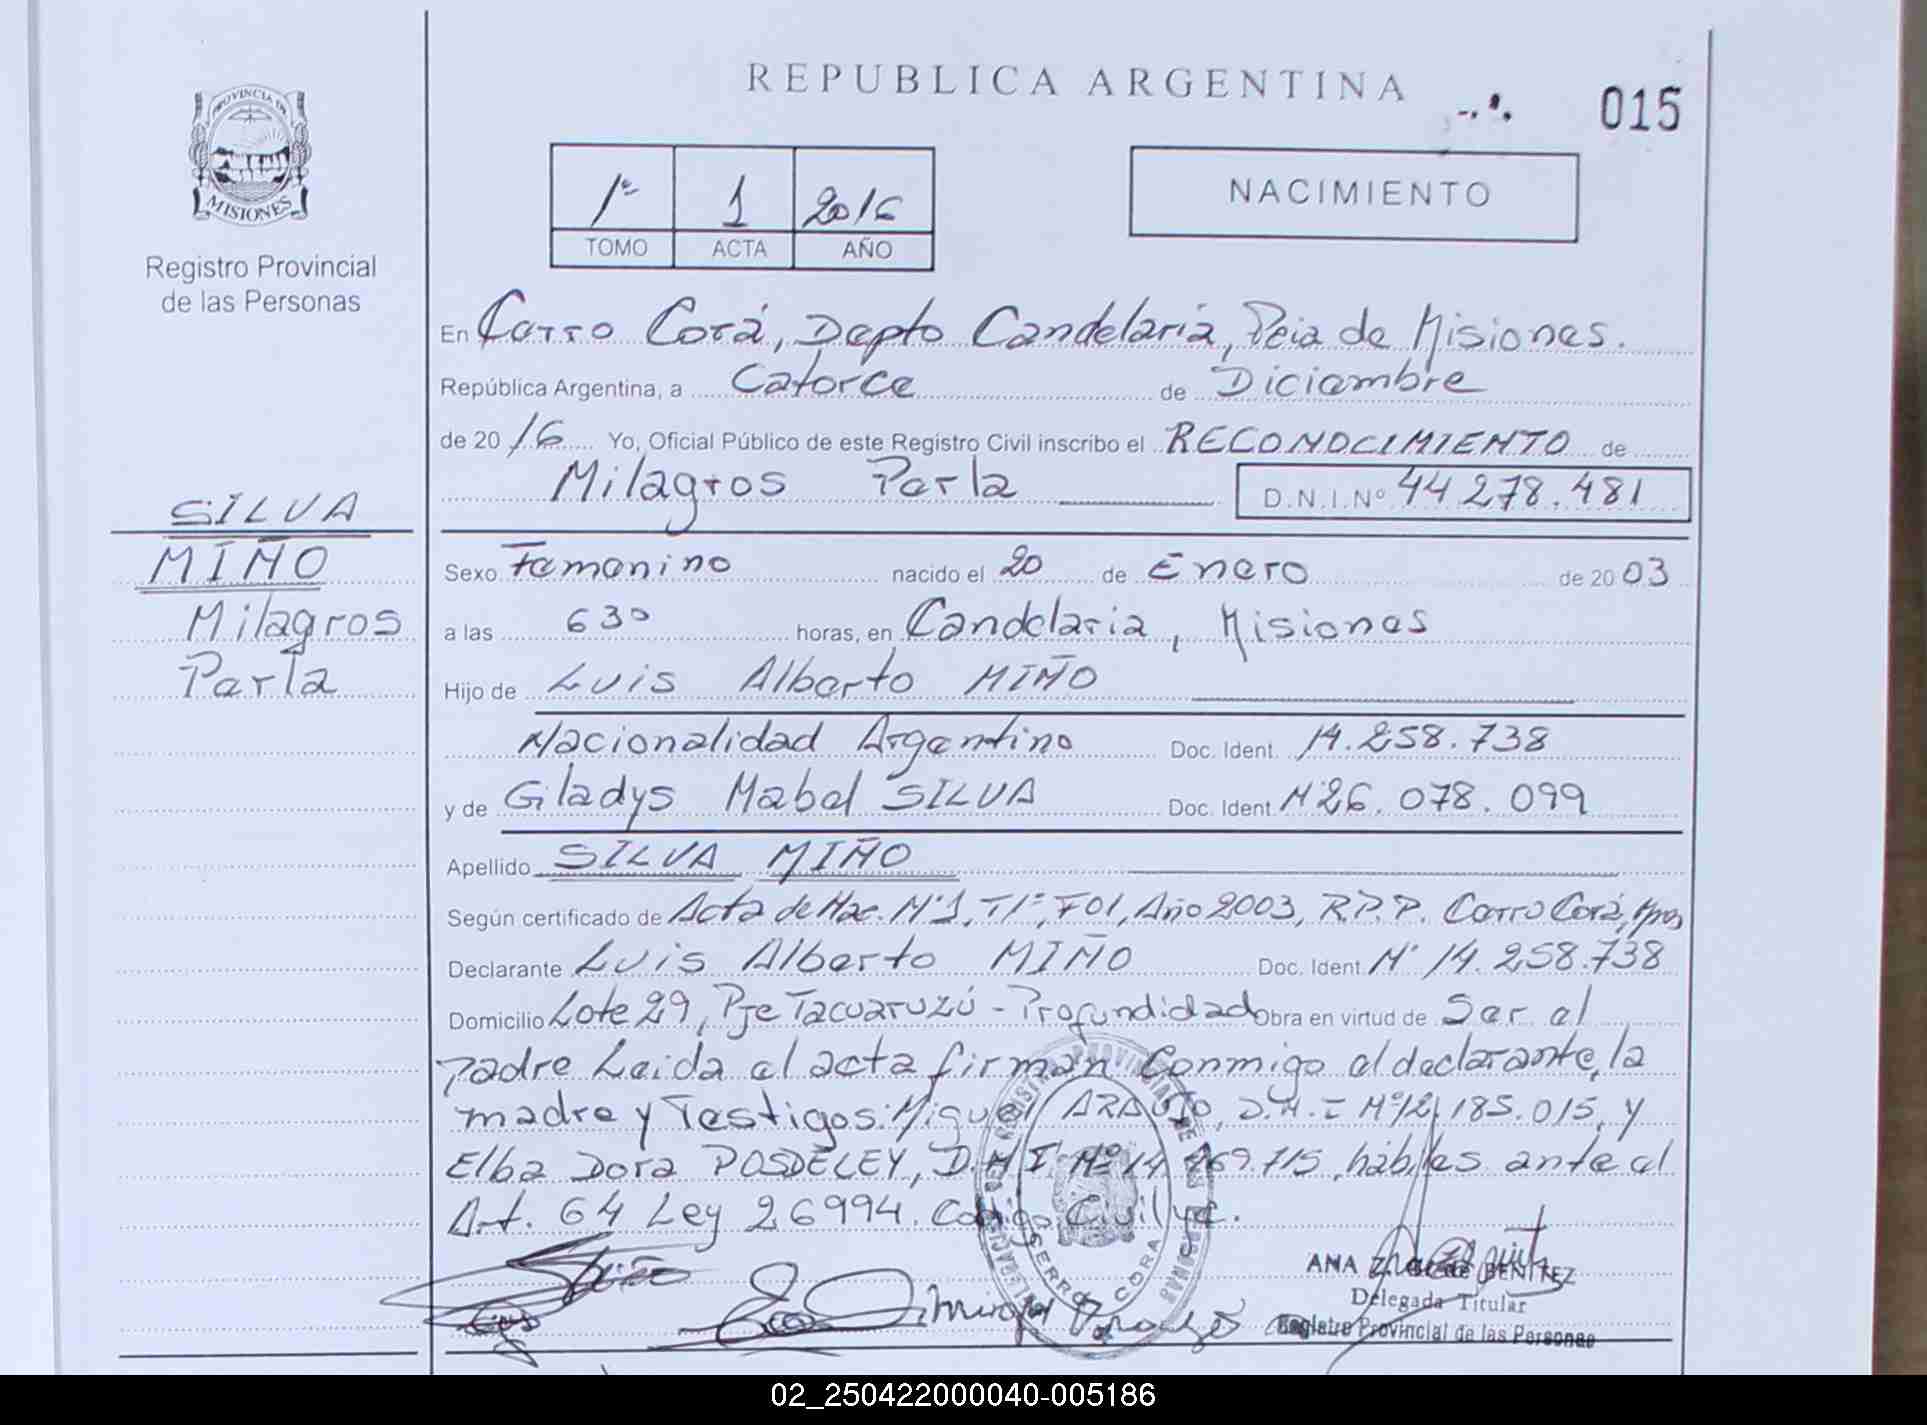 REPUBLICA ARGENTINA
015
PROVINCIA DE
MISIONES
Registro Provincial
de las Personas
1º 1 2016
TOMO ACTA AÑO
NACIMIENTO
En Cerro Corá, Depto Candelaria, Pcia de Misiones.
República Argentina, a Catorce de Diciembre
de 2016 Yo, Oficial Público de este Registro Civil inscribo el RECONOCIMIENTO de
Milagros Perla D.N.I.Nº 44 278.481
SILVA
MIÑO
Milagros
Perla
Sexo Femenino nacido el 20 de Enero de 2003
a las 630 horas, en Candelaria, Misiones
Hijo de Luis Alberto MIÑO
Nacionalidad Argentino Doc. Ident. 14.258.738
y de Gladys Mabel SILVA Doc. Ident. Nº26.078.099
Apellido SILVA MIÑO
Según certificado de Acta de Nac. Nº1, T1º, F01, Año 2003, R.P.P. Cerro Corá, Mnes
Declarante Luis Alberto MIÑO Doc. Ident. Nº 14.258.738
Domicilio Lote 29, Pje Tacuaruzú - Profundidad Obra en virtud de Ser el
padre Leida el acta firman Conmigo el declarante, la
madre y Testigos: Miguel ARAUJO, D.N.I Nº12.185.015, y
Elba Dora POSDELEY, D.N.I Nº 14.769.715, hábiles ante el
Art. 64 Ley 26994. Código Civil yc.
REGISTRO PROVINCIAL DE LAS PERSONAS
CERRO CORA
Miño
ANA BENITEZ
Delegada Titular
Registro Provincial de las Personas
02_250422000040-005186